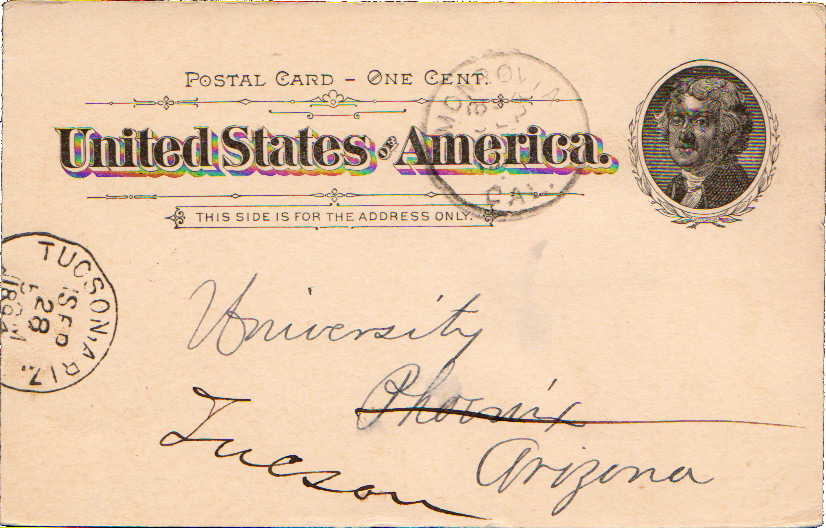 POSTAL CARD – ONE CENT.
United States OF America.
THIS SIDE IS FOR THE ADDRESS ONLY.
MONROVIA
CAL.
TUCSON, ARIZ.
SEP
28
1894
University
Phoenix
Tucson
Arizona